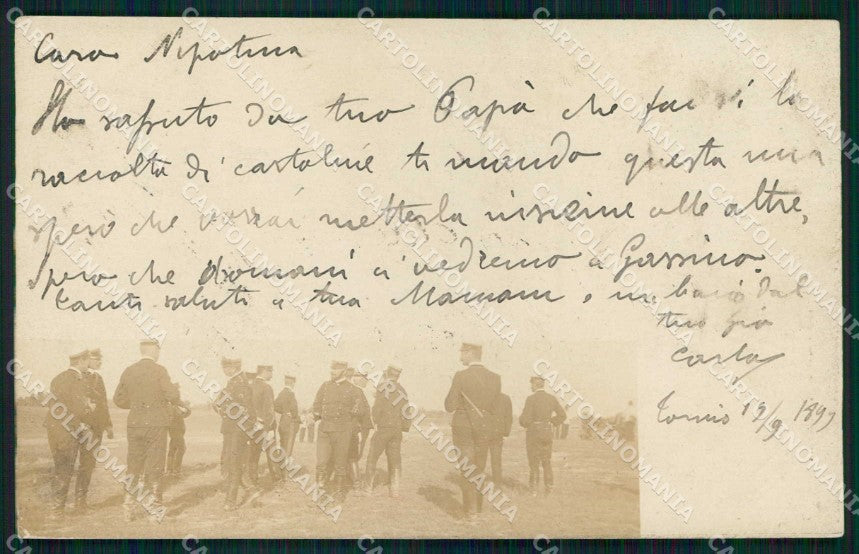 Cara Nipotina
Ho saputo da tuo Papà che fai la
raccolta di cartoline ti mando questa una
spero che vorrai metterla insieme alle altre,
Spero che domani ci vedremo a Gassino.
tanti saluti a tua Mamam e un bacio dal
tuo zio
Carlo
Torino 12/9 1897
CARTOLINOMANIA